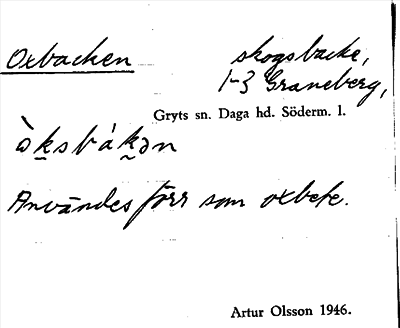 Oxbacken
skogsbacke,
1-3 Graneberg,
Gryts sn. Daga hd. Söderm. l.
ò̀ksbákən
Användes förr som oxbete.
Artur Olsson 1946.